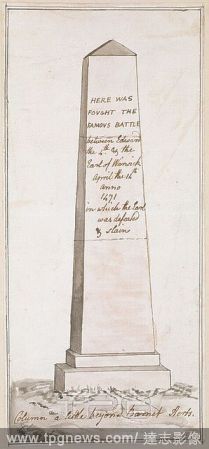 HERE WAS
FOVGHT THE
FAMOUS BATTLE
between Edward
the 4th & the
Earl of Warwick
April the 14th
anno
1471
in which the Earl
was defeated
& slain
Column a little beyond Barnet Herts.
www.tpgnews.com / 達志影像